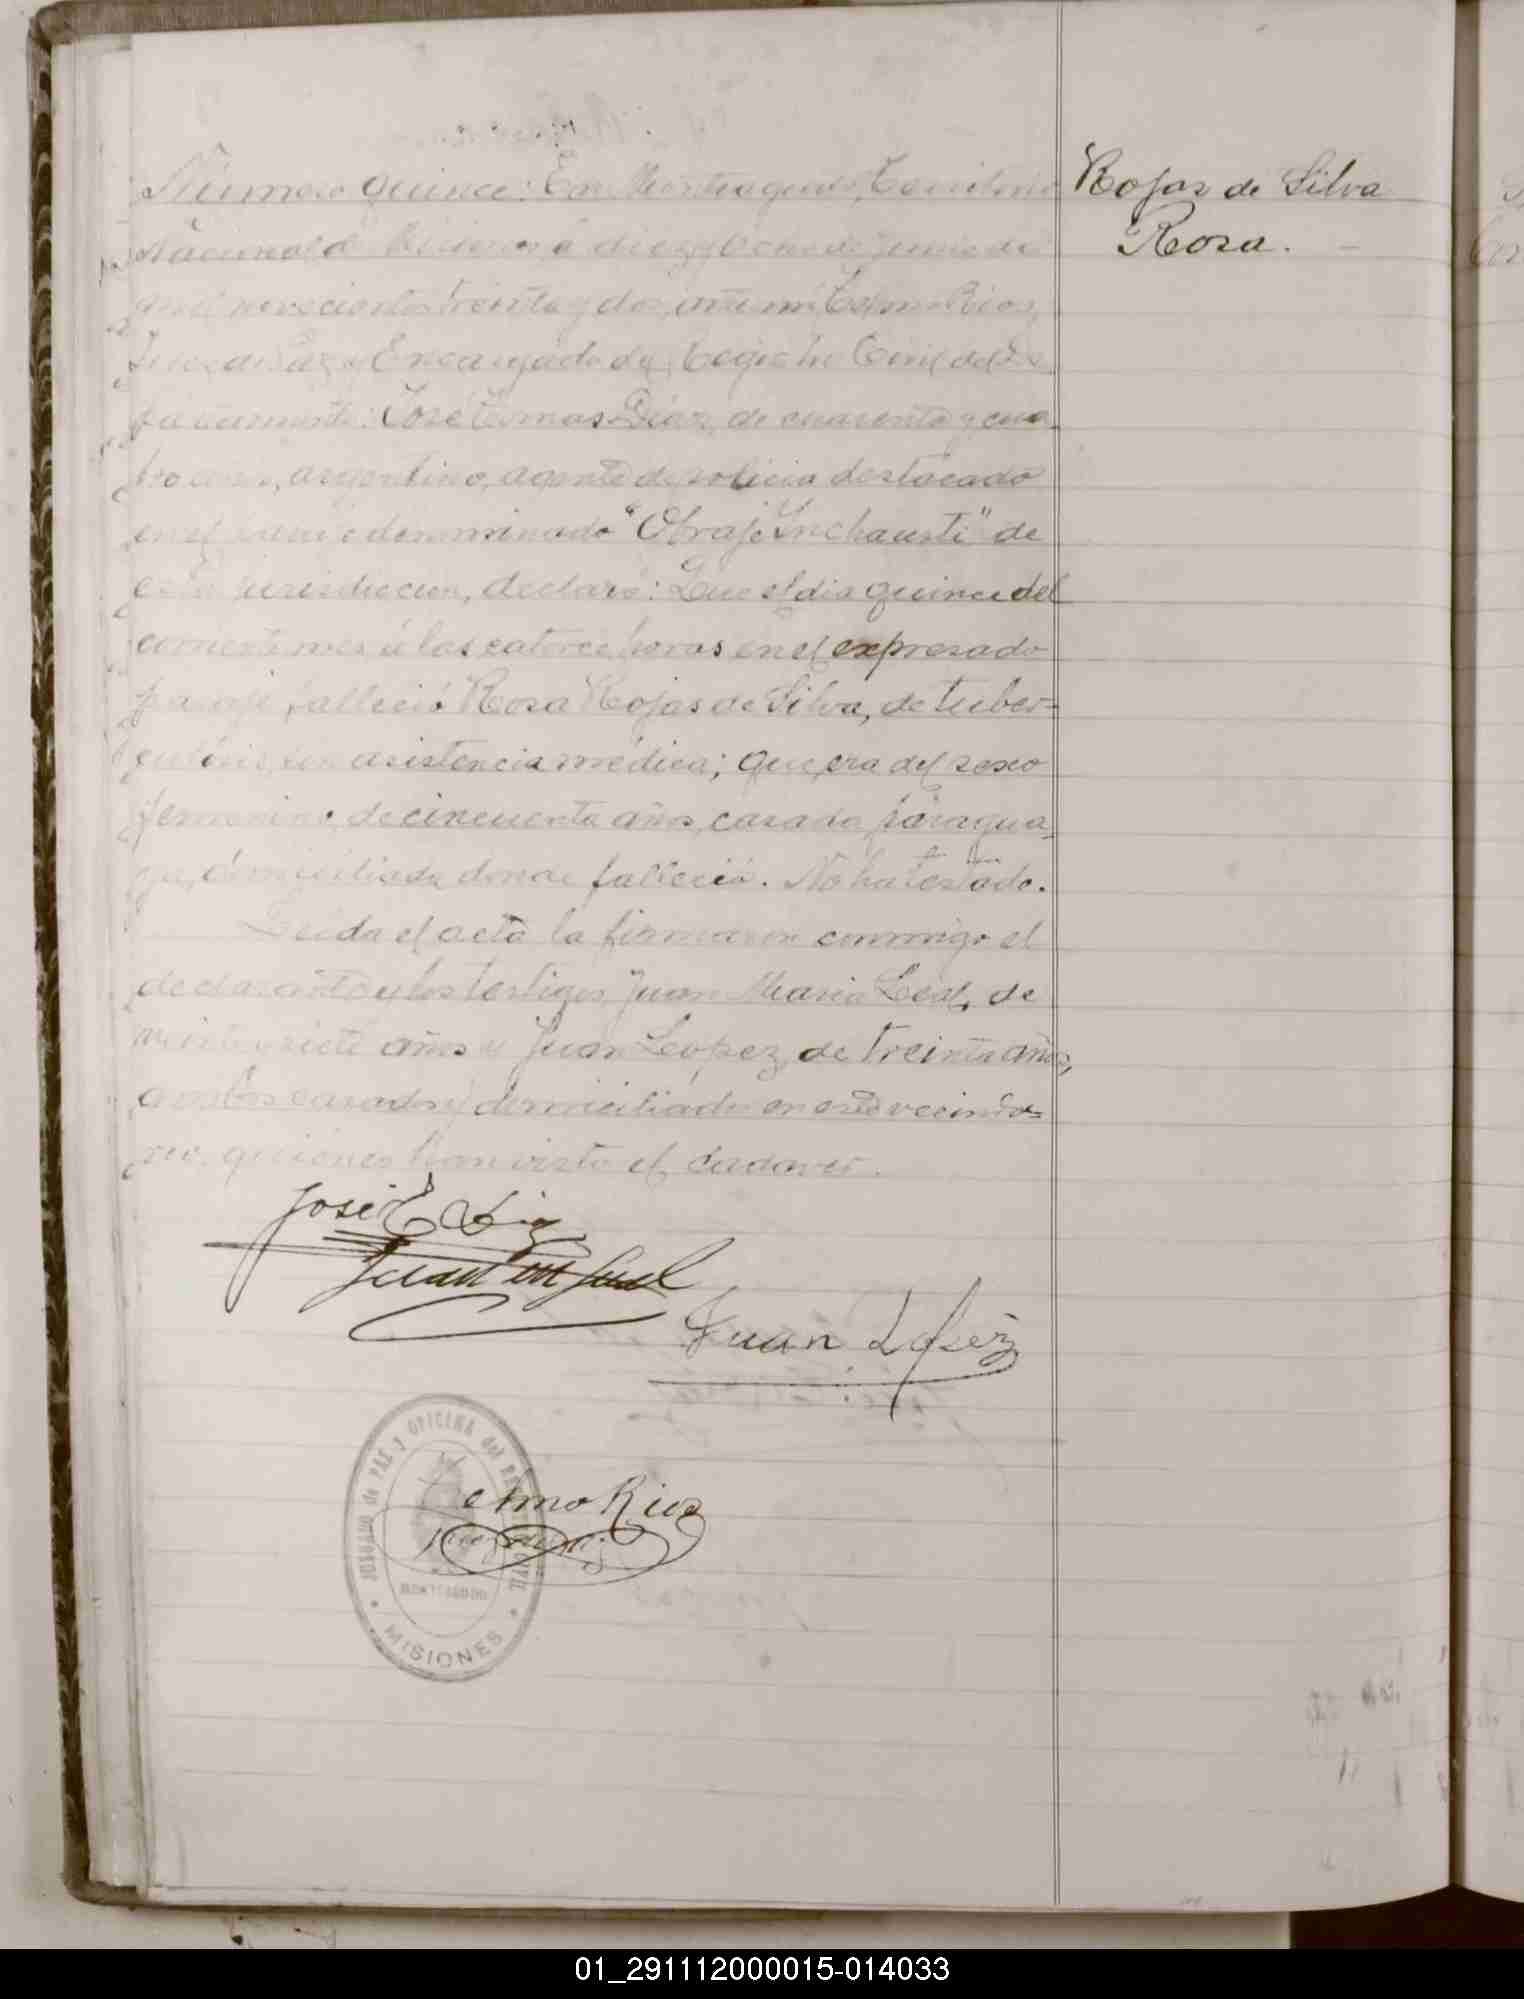 Rojas de Silva
Rosa. -
Número quince: En Monteagudo, Territorio
Nacional de Misiones a diez y ocho de Junio de
mil novecientos treinta y dos, ante mí Telmo Rios,
Juez de Paz y Encargado del Registro Civil del De-
partamento: José Tomas Diaz, de cuarenta y cua-
tro años, argentino, agente de policia destacado
en el paraje denominado "Obraje Inchausti" de
esta jurisdiccion, declaró: Que el dia quince del
corriente mes á las catorce horas en el expresado
paraje, falleció Rosa Rojas de Silva, de tuber-
culosis, sin asistencia médica; que era del sexo
femenino, de cincuenta años, casada, paragua-
ya, domiciliada donde falleció. No ha testado.
Leida el acta la firmaron conmigo el
declarante y los testigos Juan Maria Leal, de
veinte y siete años y Juan Lopez, de treinta años,
ambos casados y domiciliados en este vecinda-
rio, quienes han visto el cadaver.
José T. Diaz
Juan M Leal
Juan Lopez
Telmo Rios
Juez de Paz
JUZGADO de PAZ y OFICINA del REGISTRO CIVIL
MONTEAGUDO
MISIONES
01_291112000015-014033